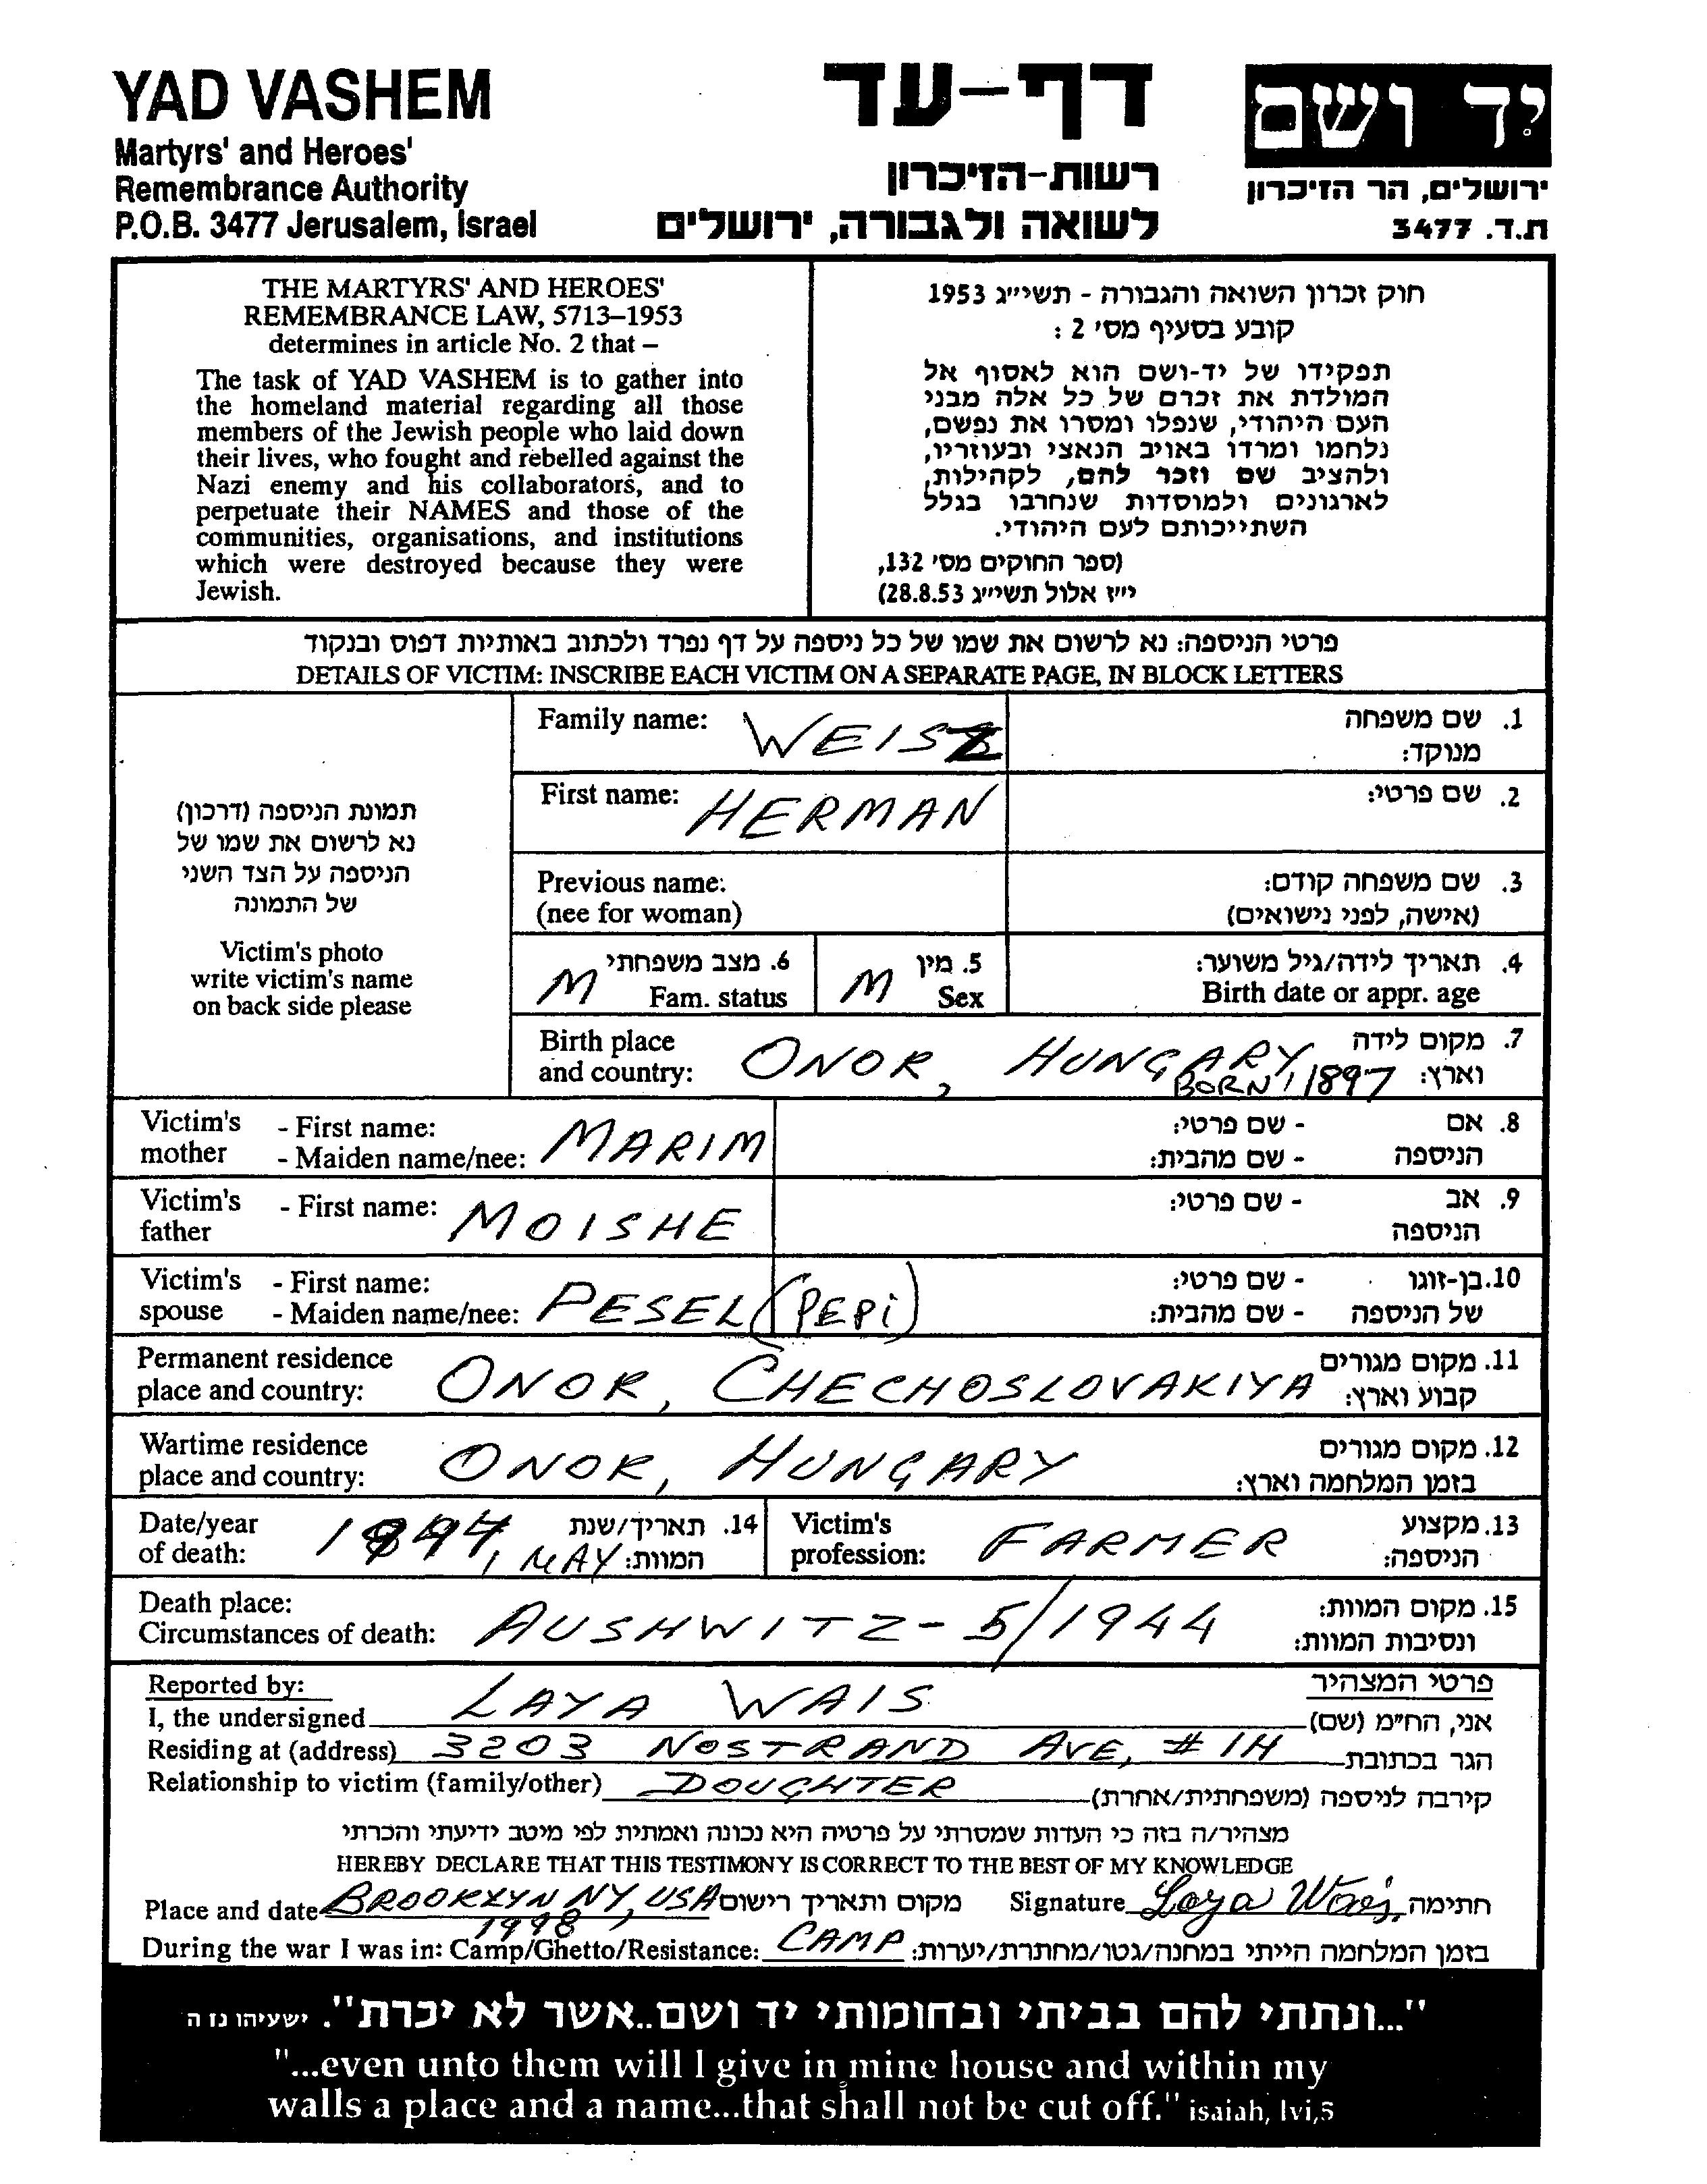 YAD VASHEM
Martyrs' and Heroes'
Remembrance Authority
P.O.B. 3477 Jerusalem, Israel
דף-עד
רשות-הזיכרון
לשואה ולגבורה, ירושלים
יד ושם
ירושלים, הר הזיכרון
ת.ד. 3477
THE MARTYRS' AND HEROES'
REMEMBRANCE LAW, 5713–1953
determines in article No. 2 that –
The task of YAD VASHEM is to gather into
the homeland material regarding all those
members of the Jewish people who laid down
their lives, who fought and rebelled against the
Nazi enemy and his collaborators, and to
perpetuate their NAMES and those of the
communities, organisations, and institutions
which were destroyed because they were
Jewish.
חוק זכרון השואה והגבורה - תשי״ג 1953
קובע בסעיף מס׳ 2 :
תפקידו של יד-ושם הוא לאסוף אל
המולדת את זכרם של כל אלה מבני
העם היהודי, שנפלו ומסרו את נפשם,
נלחמו ומרדו באויב הנאצי ובעוזריו,
ולהציב שם וזכר להם, לקהילות,
לארגונים ולמוסדות שנחרבו בגלל
השתייכותם לעם היהודי.
(ספר החוקים מס׳ 132,
י״ז אלול תשי״ג 28.8.53)
פרטי הניספה: נא לרשום את שמו של כל ניספה על דף נפרד ולכתוב באותיות דפוס ובנקוד
DETAILS OF VICTIM: INSCRIBE EACH VICTIM ON A SEPARATE PAGE, IN BLOCK LETTERS
תמונת הניספה (דרכון)
נא לרשום את שמו של
הניספה על הצד השני
של התמונה
Victim's photo
write victim's name
on back side please
Family name: WEISZ 1. שם משפחה
מנוקד:
First name: HERMAN 2. שם פרטי:
Previous name: 3. שם משפחה קודם:
(nee for woman) (אישה, לפני נישואים)
M 6. מצב משפחתי M 5. מין 4. תאריך לידה/גיל משוער:
Fam. status Sex Birth date or appr. age
Birth place ONOR, HUNGARY 7. מקום לידה
and country: BORN 1897 וארץ:
Victim's - First name: - שם פרטי: 8. אם
mother - Maiden name/nee: MARIM - שם מהבית: הניספה
Victim's - First name: MOISHE - שם פרטי: 9. אב
father הניספה
Victim's - First name: - שם פרטי: 10. בן-זוגו
spouse - Maiden name/nee: PESEL (PEPi) - שם מהבית: של הניספה
Permanent residence 11. מקום מגורים
place and country: ONOR, CHECHOSLOVAKIYA קבוע וארץ:
Wartime residence 12. מקום מגורים
place and country: ONOR, HUNGARY בזמן המלחמה וארץ:
Date/year 1944, 14. תאריך/שנת Victim's 13. מקצוע
of death: MAY המוות: profession: FARMER הניספה:
Death place: 15. מקום המוות:
Circumstances of death: AUSHWITZ - 5/1944 ונסיבות המוות:
Reported by: פרטי המצהיר
I, the undersigned LAYA WAIS אני, הח״מ (שם)
Residing at (address) 3203 NOSTRAND AVE, # 1H הגר בכתובת
Relationship to victim (family/other) DOUGHTER קירבה לניספה (משפחתית/אחרת)
מצהיר/ה בזה כי העדות שמסרתי על פרטיה היא נכונה ואמתית לפי מיטב ידיעתי והכרתי
HEREBY DECLARE THAT THIS TESTIMONY IS CORRECT TO THE BEST OF MY KNOWLEDGE
Place and date BROOKLYN NY, USA מקום ותאריך רישום Signature Laya Wais חתימה
1998
During the war I was in: Camp/Ghetto/Resistance: CAMP בזמן המלחמה הייתי במחנה/גטו/מחתרת/יערות:
"...ונתתי להם בביתי ובחומותי יד ושם..אשר לא יכרת". ישעיהו נז ה
"...even unto them will I give in mine house and within my
walls a place and a name...that shall not be cut off." isaiah, lvi,5